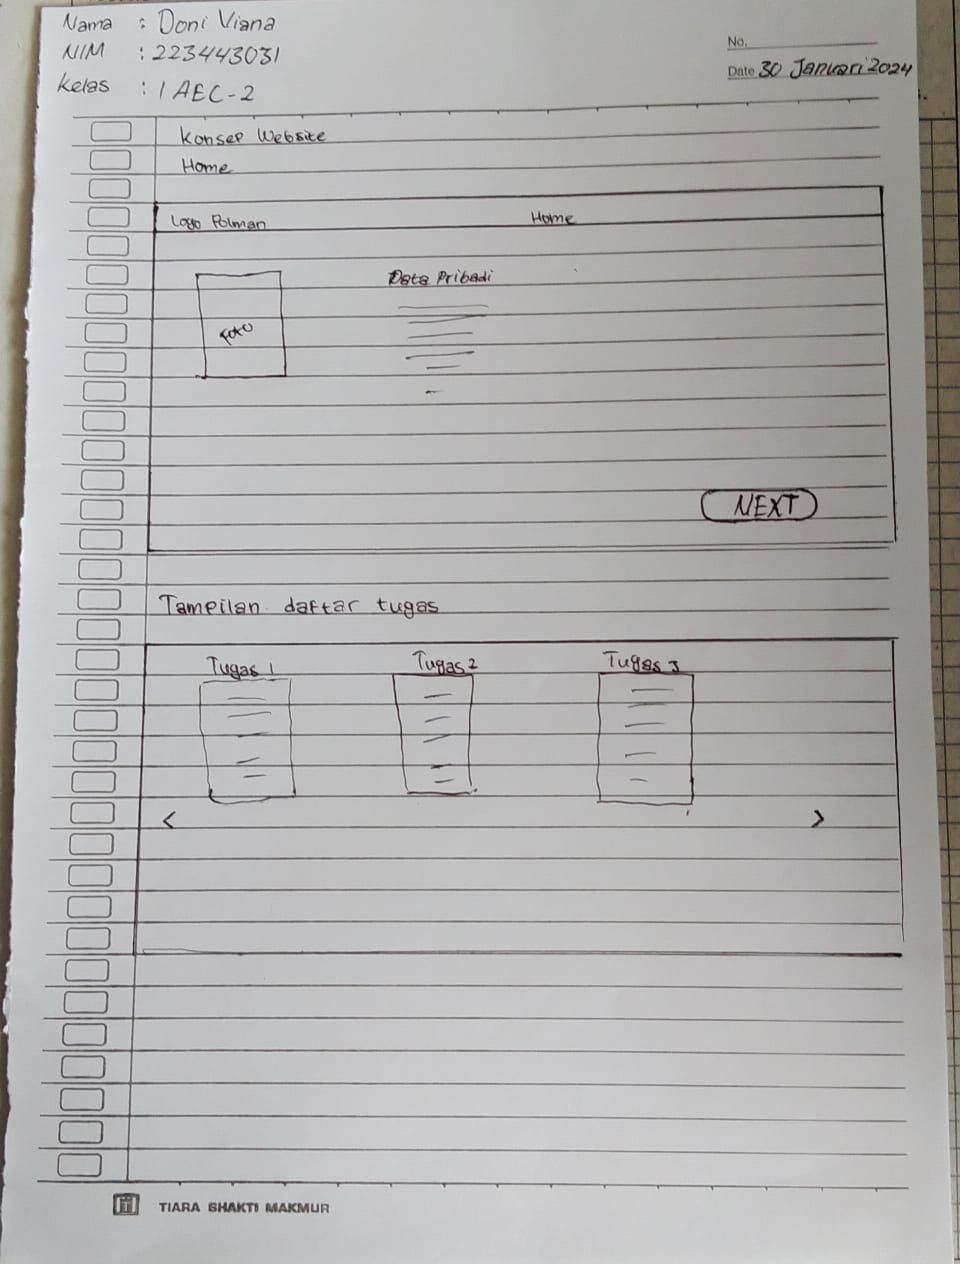 Nama : Doni Viana
NIM : 223443031
Kelas : 1 AEC-2
No.
Date 30 Januari 2024
Konsep Website
Home
Logo Polman Home
Data Pribadi
Foto
NEXT
Tampilan daftar tugas
Tugas 1 Tugas 2 Tugas 3
< >
TIARA BHAKTI MAKMUR